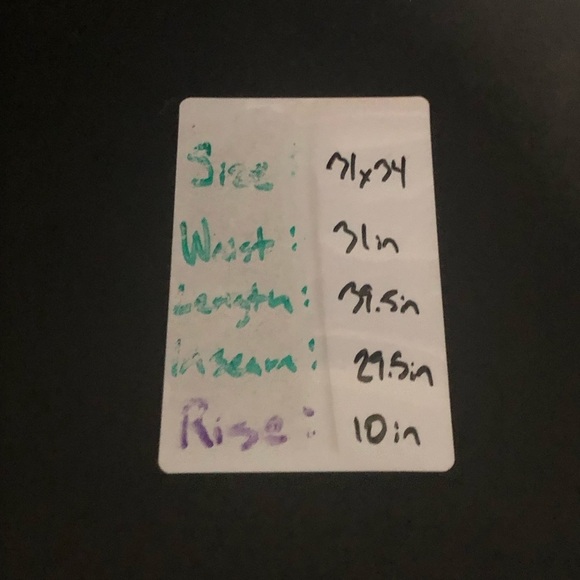 Size: 31x34
Waist: 31in
Length: 39.5in
Inseam: 29.5in
Rise: 10in